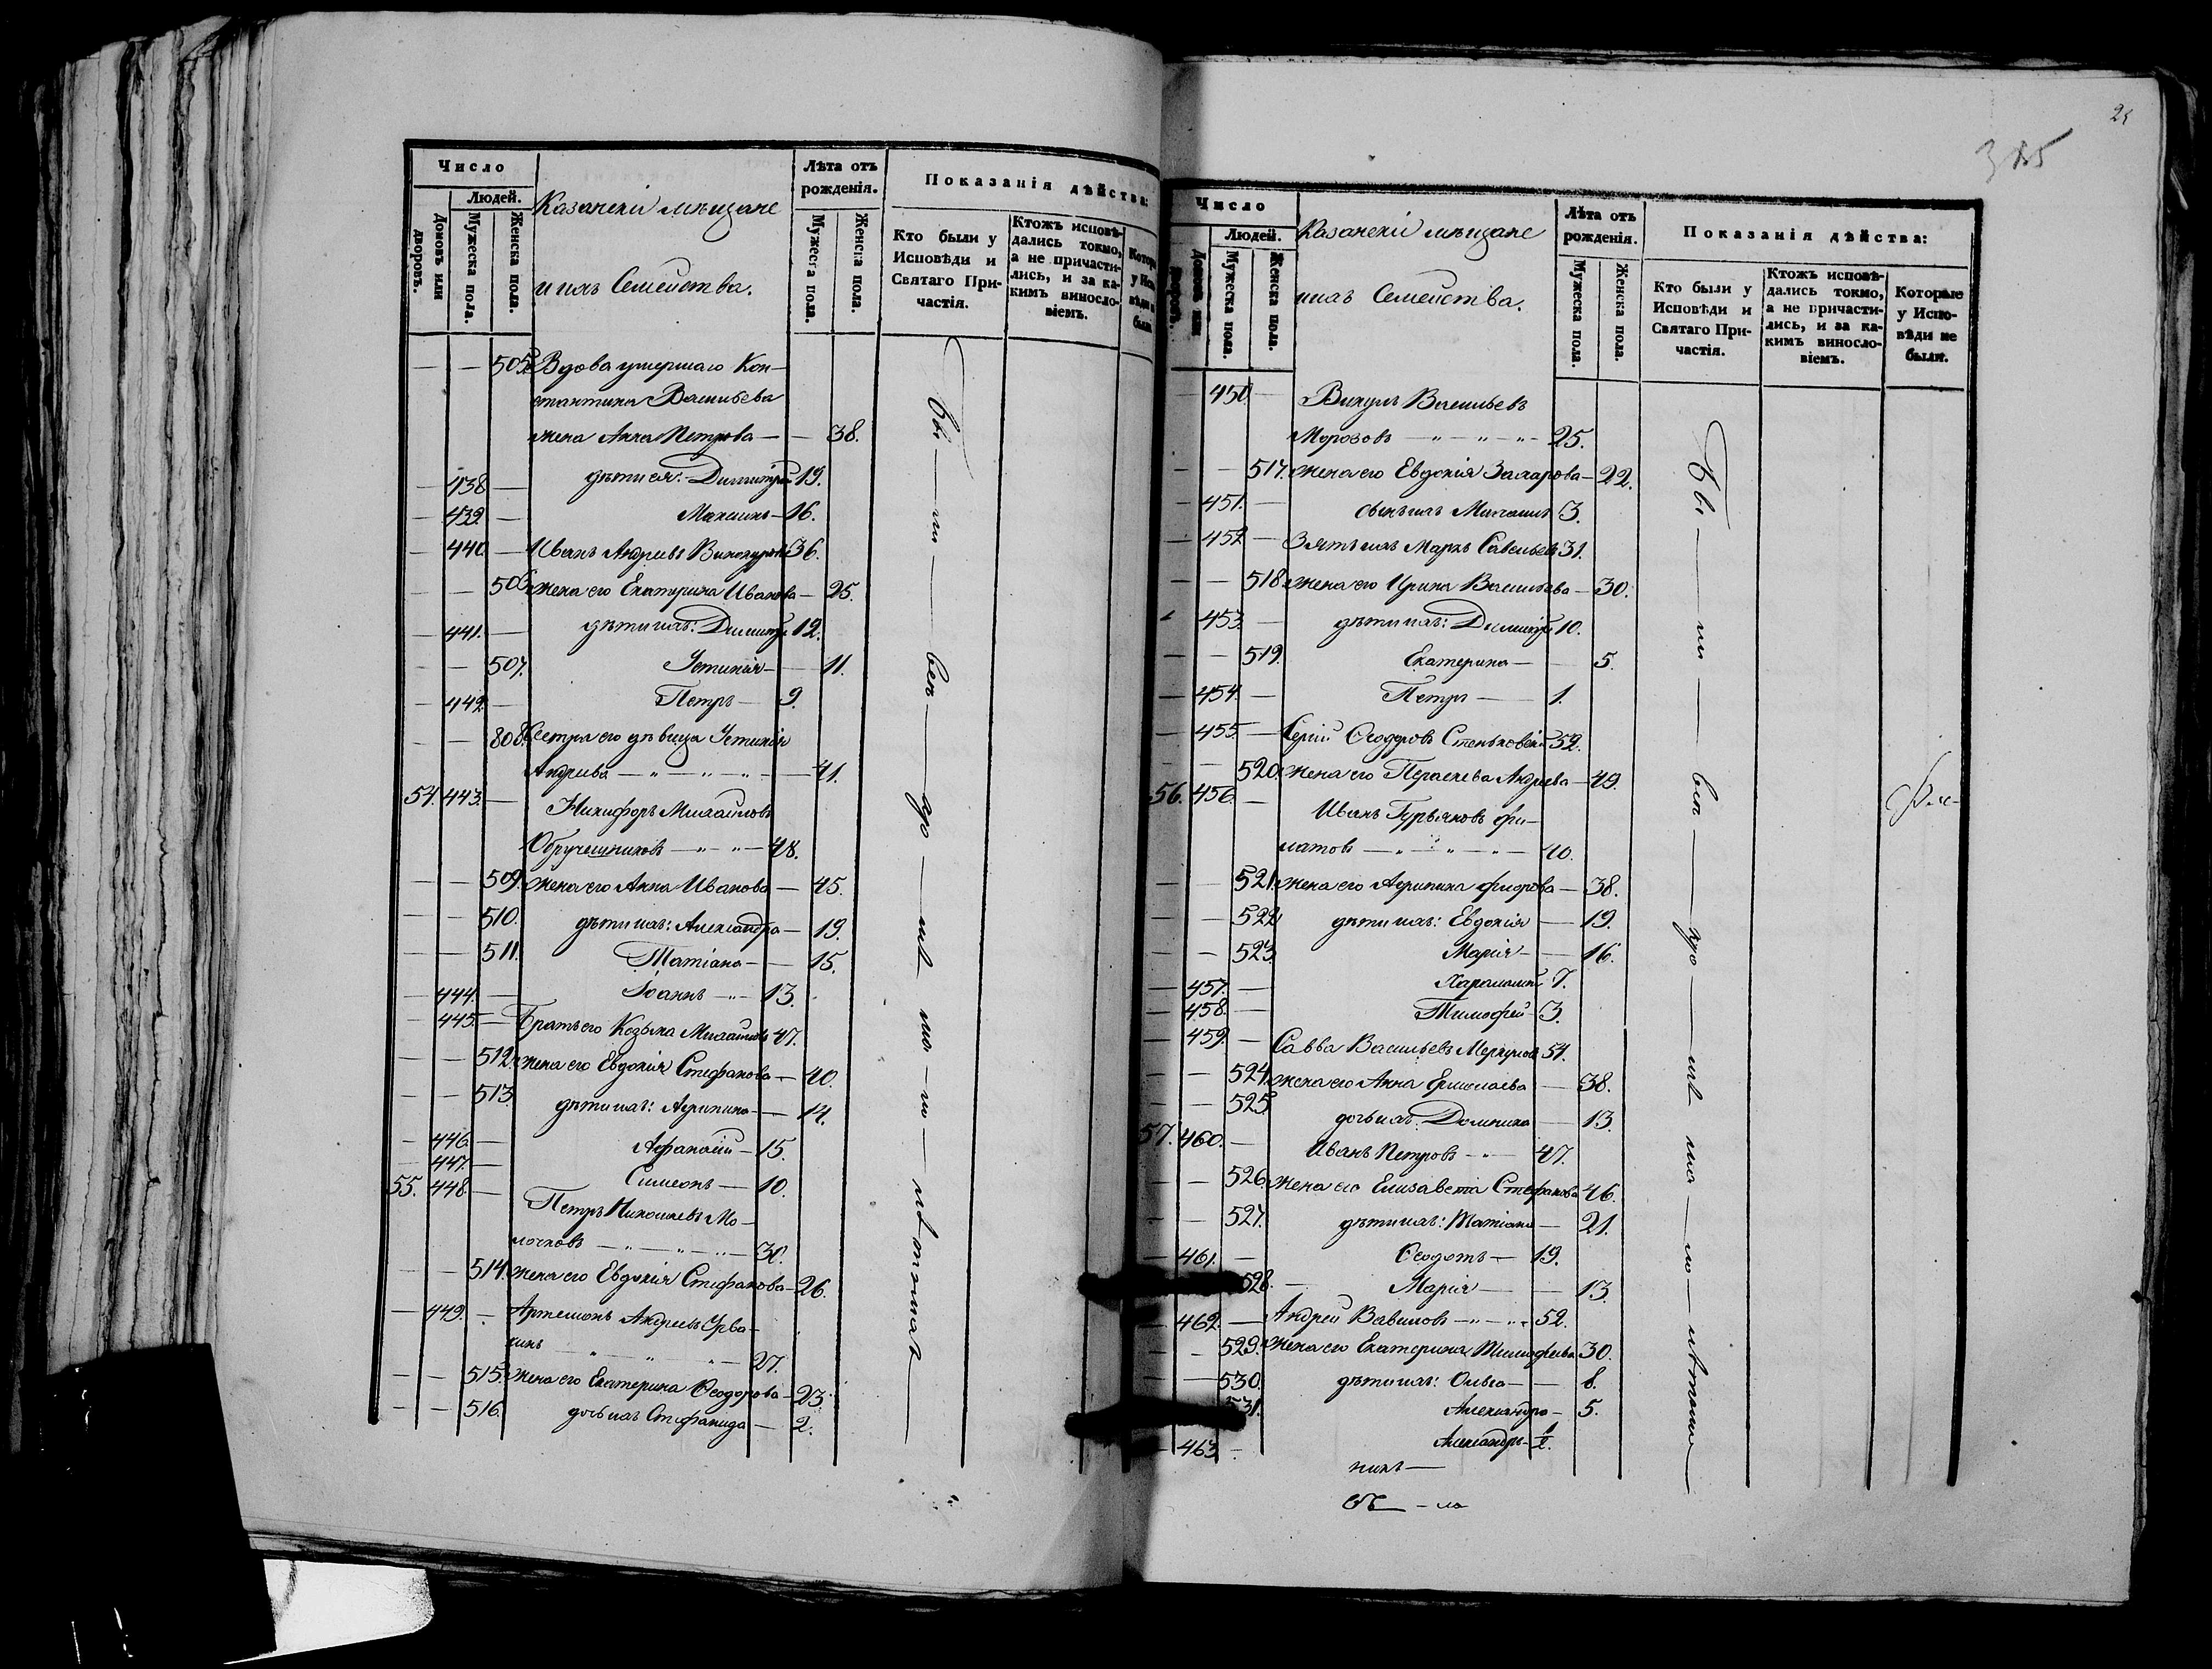 Число
Людей.
Домовъ или дворовъ.
Мужеска пола.
Женска пола.
Казанскіи мѣщане
и ихъ Семейства.
Лѣта отъ рожденія.
Мужеска пола.
Женска пола.
Показанія дѣйства:
Кто были у Исповѣди и Святаго Причастія.
Ктожъ исповѣдались токмо, а не причастились, и за какимъ винословіемъ.
— — 505 Вдова умершаго Кон-
стантина Васильева
жена Анна Петрова — — 38.
— 438 — дѣти ея: Димитрій 19.
— 439. — Максимъ — 16.
— 440. — Иванъ Андреевъ Винокуровъ 36.
— — 506. жена его Екатерина Иванова — 25.
— 441. — дѣти ихъ: Димитрій 12.
— — 507. Устинія — 11.
— 442. — Петръ — 9.
— — 808. Сестра его дѣвица Устинія
Андреева — " — " — " — 41.
54. 443. — Никифоръ Михайловъ
Обручешниковъ — " — " — 48.
— — 509. жена его Анна Иванова — 45.
— — 510. дѣти ихъ: Александра — 19.
— — 511. Татіана — — 15.
— 444. — Іоаннъ — " — 13.
— 445. — Братъ его Козьма Михайловъ 47.
— — 512. жена его Евдокія Стефанова — 40.
— — 513. дѣти ихъ: Агрипина — 14.
— 446. — Афанасій — 15.
— 447. — Симеонъ — 10.
55. 448. — Петръ Николаевъ Мо-
лочковъ — " — " — " — 30.
— — 514. жена его Евдокія Стефанова — 26.
— 449. — Артемонъ Андреевъ
кинъ — " — " — " — 27.
— — 515. жена его Екатерина Ѳеодорова — 23.
— — 516. дочь ихъ Стефанида — 2.
25
385
Число
Людей.
Домовъ или дворовъ.
Мужеска пола.
Женска пола.
Казанскіи мѣщане
и ихъ Семейства.
Лѣта отъ рожденія.
Мужеска пола.
Женска пола.
Показанія дѣйства:
Кто были у Исповѣди и Святаго Причастія.
Ктожъ исповѣдались токмо, а не причастились, и за какимъ винословіемъ.
Которые у Исповѣди не были.
— 450. — Викулъ Васильевъ
Морозовъ — " — " — " — 25.
— — 517. жена его Евдокія Захарова — 22.
— 451. — сынъ ихъ Михаилъ 3.
— 452 — Зять ихъ Маркъ Савельевъ 31.
— — 518. жена его Ирина Васильева — 30.
— 453. — дѣти ихъ: Димитрій 10.
— — 519. Екатерина — — 5.
— 454. — Петръ — 1.
— 455. — Ѳеодоровъ 52.
— — 520. жена его Параскева Андреева — 49.
56. 456. — Иванъ Гурьяновъ Фи-
латовъ — " — " — " — 40.
— — 521. жена его Агрипина — 38.
— — 522. дѣти ихъ: Евдокія — 19.
— — 523. Марія — — 16.
— 457. — Харалампій 7.
— 458. — Тимофей — 3.
— 459. — Савва Васильевъ Меркуловъ 54.
— — 524. жена его Анна Ермолаева — 38.
— — 525. дочь ихъ: Домника — 13.
57. 460. — Иванъ Петровъ — " — 47.
— — 526. жена его Елисавета Стефанова 46.
— — 527. дѣти ихъ: Татіана — 21.
— 461. — Ѳеодотъ — 19.
528. — Марія — — 13.
— 462. — Андрей Вавиловъ — " — " — 52.
— — 529. жена его Екатерина Тимофеева 30.
— — 530. дѣти ихъ: Ольга — — 8.
531. Александра — 5.
— 463. — Александръ
Бы — ли — всѣ